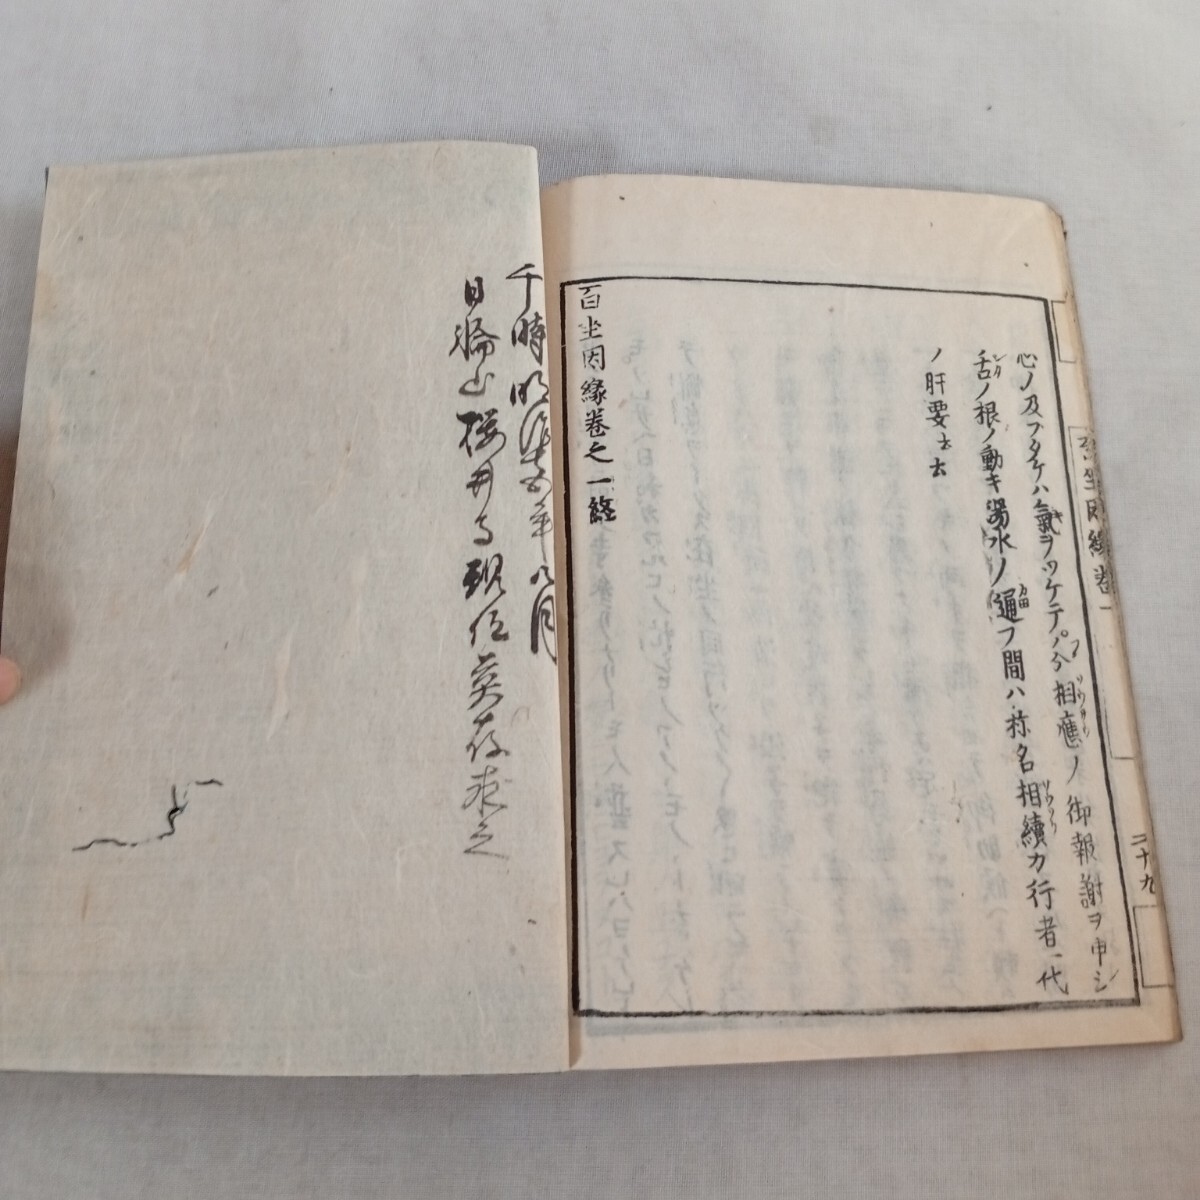 心ノ及フタケハ氣ヲツケテ分相應ノ御報謝ヲ申シ
舌ノ根ノ動キ湯水ノ通フ間ハ称名相續カ行者一代
ノ肝要云云
百坐因縁巻之一終
百坐因縁巻一
二十九
干時明治十五年八月
日輪山桜井寺現住
求之